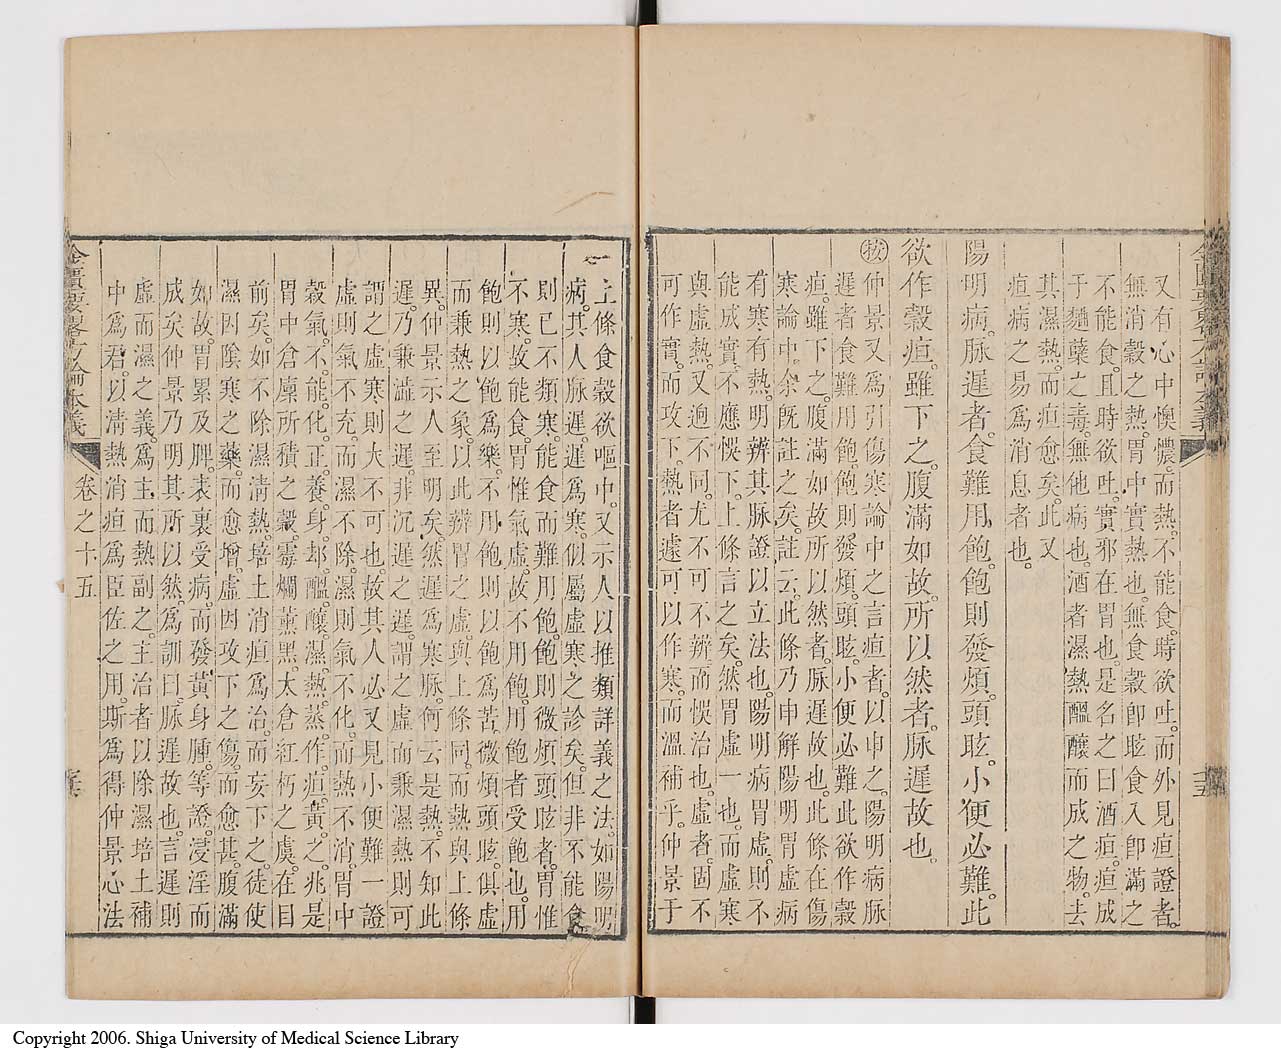 又有心中懊憹。而熱。不能食。時欲吐。而外見疸證者。
無消穀之熱。胃中實熱也。無食穀卽眩食入卽滿之
不能食。且時欲吐。實邪在胃也。是名之曰酒疸。疸成
于麵蘗之毒。無他病也。酒者濕熱醞釀而成之物。去
其濕熱。而疸愈矣。此又
疸病之易爲消息者也。
陽明病。脉遲者。食難用飽。飽則發煩。頭眩。小便必難。此
欲作穀疸。雖下之。腹滿如故。所以然者。脉遲故也。
按仲景又爲引傷寒論中之言疸者。以申之。陽明病脉
遲者食難用飽。飽則發煩。頭眩。小便必難此欲作穀
疸。雖下之。腹滿如故所以然者。脉遲故也。此條在傷
寒論中。余旣註之矣。註云。此條乃申解陽明胃虛病
有寒有熱。明辨其脉證以立法也。陽明病胃虛。則不
能成實。不應悞下。上條言之矣。然胃虛一也。而虛寒
與虛熱。又逈不同。尤不可不辨而悞治也。虛者。固不
可作實。而攻下。熱者遽可以作寒。而溫補乎。仲景于
上條食穀欲嘔中。又示人以推類詳義之法。如陽明
病。其人脉遲。遲爲寒。似屬虛寒之診矣。但非不能食
則已不類寒。能食而難用飽。飽則微煩頭眩者。胃惟
不寒。故能食。胃惟氣虛。故不用飽。用飽者受飽也。用
飽則以飽爲樂。不用飽則以飽爲苦。微煩頭眩。俱虛
而兼熱之象。以此辨胃之虛。與上條同。而熱與上條
異。仲景示人至明矣。然遲爲寒脉。何云是熱。不知此
遲。乃兼澁之遲。非沉遲之遲。謂之虛而兼濕熱則可
謂之虛寒則大不可也。故其人必又見小便難一證
虛則氣不充。而濕不除。濕則氣不化。而熱不消。胃中
穀氣。不能化。正。養身。却醞釀。濕熱。蒸。作。疸。黃。之。兆是
胃中倉廩所積之穀。霉爛薰黑。太倉紅朽之虞。在目
前矣。如不除濕淸熱。培土消疸爲治。而妄下之。徒使
濕因陰寒之藥。而愈增虛因攻下之傷。而愈甚腹滿
如故。胃累及脾。表裏受病。而發黃身腫等證。浸淫而
成矣仲景乃明其所以然。爲訓曰。脉遲故也。言遲則
虛而濕之義。爲主而熱副之。主治者以除濕培土補
中爲君。以淸熱消疸爲臣佐之用。斯爲得仲景心法
金匱要畧方論本義
卷之十五
Copyright 2006. Shiga University of Medical Science Library